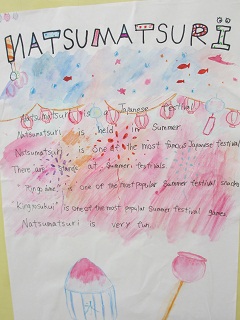 NATSUMATSURI
Natsumatsuri is a Japanese festival
Natsumatsuri is held in Summer.
Natsumatsuri is one of the most famous Japanese festival
There are at Summer festivals.
"Ringoame" is one of the most popular Summer festival snacks
"Kingyosukui" is one of the most popular Summer festival games
Natsumatsuri is very fun.